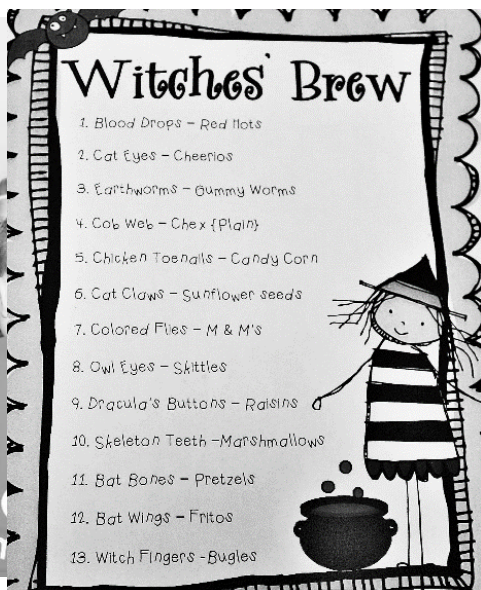 Witches' Brew
1. Blood Drops – Red Hots
2. Cat Eyes – Cheerios
3. Earthworms – Gummy Worms
4. Cob Web – Chex {Plain}
5. Chicken Toenails – Candy Corn
6. Cat Claws – Sunflower seeds
7. Colored Flies – M & M's
8. Owl Eyes – Skittles
9. Dracula's Buttons – Raisins
10. Skeleton Teeth -Marshmallows
11. Bat Bones – Pretzels
12. Bat Wings – Fritos
13. Witch Fingers -Bugles